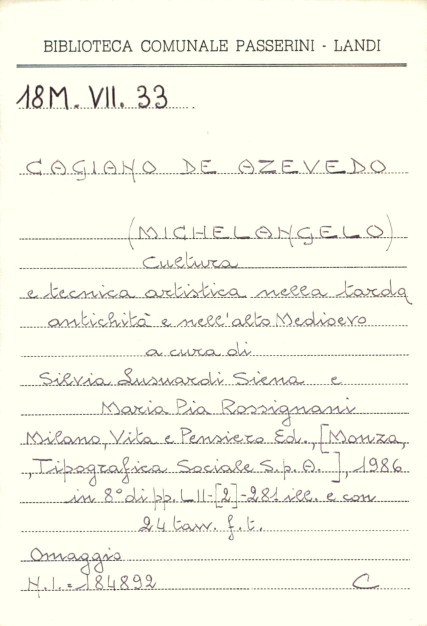 BIBLIOTECA COMUNALE PASSERINI - LANDI
18M. VII. 33
CAGIANO DE AZEVEDO
(MICHELANGELO)
Cultura
e tecnica artistica nella tarda
antichità e nell'alto Medioevo
a cura di
Silvia Lusuardi Siena e
Maria Pia Rossignani
Milano, Vita e Pensiero Ed., [Monza,
, Tipografica Sociale S.p.A. ], 1986
in 8° di pp. LII-[2]-281 ill. e con
24 tavv. f.t.
Omaggio
N.I. = 184892 C